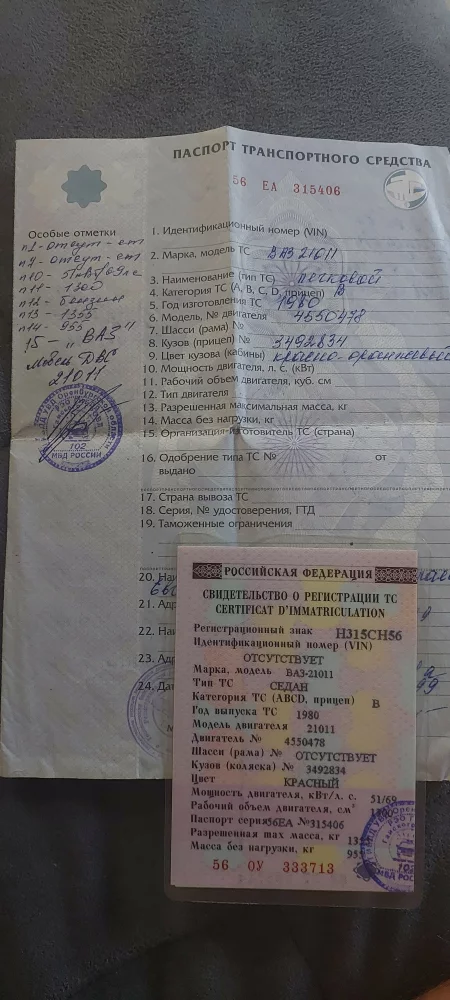 ПАСПОРТ ТРАНСПОРТНОГО СРЕДСТВА
56 ЕА 315406
Особые отметки
п1 - отсут - ет
п7 - отсут - ет
п10 -
п11 - 1300
п12 - бензин
п13 - 1355
п14 - 955
15 - „ВАЗ"
Модель ДВС
21011
102
МВД РОССИИ
1. Идентификационный номер (VIN)
2. Марка, модель ТС ВАЗ 21011
3. Наименование (тип ТС) легковой
4. Категория ТС (А, В, С, D, прицеп) В
5. Год изготовления ТС 1980
6. Модель, № двигателя 4550478
7. Шасси (рама) №
8. Кузов (прицеп) № 3492834
9. Цвет кузова (кабины) красно-оранжевый
10. Мощность двигателя, л. с. (кВт)
11. Рабочий объем двигателя, куб. см
12. Тип двигателя
13. Разрешенная максимальная масса, кг
14. Масса без нагрузки, кг
15. Организация-изготовитель ТС (страна)
16. Одобрение типа ТС № от
выдано
17. Страна вывоза ТС
18. Серия, № удостоверения, ГТД
19. Таможенные ограничения
20. Наи
21. Адр
22. Наи
23. Адр
24. Дат
РОССИЙСКАЯ ФЕДЕРАЦИЯ
СВИДЕТЕЛЬСТВО О РЕГИСТРАЦИИ ТС
CERTIFICAT D'IMMATRICULATION
Регистрационный знак Н315СН56
Идентификационный номер (VIN)
ОТСУТСТВУЕТ
Марка, модель ВАЗ-21011
Тип ТС СЕДАН
Категория ТС (ABCD, прицеп) В
Год выпуска ТС 1980
Модель двигателя 21011
Двигатель № 4550478
Шасси (рама) № ОТСУТСТВУЕТ
Кузов (коляска) № 3492834
Цвет КРАСНЫЙ
Мощность двигателя, кВт/л. с. 51/69
Рабочий объем двигателя, см³
Паспорт серия 56ЕА № 315406
Разрешенная max масса, кг 135
Масса без нагрузки, кг 955
56 ОУ 333713